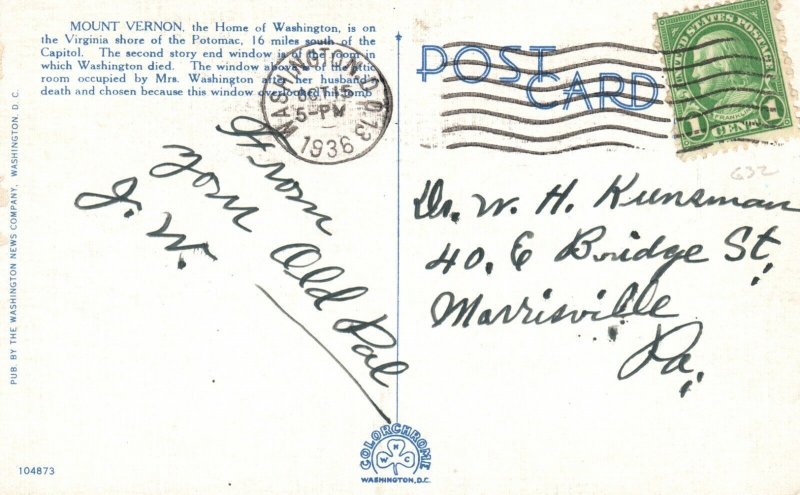 MOUNT VERNON, the Home of Washington, is on
the Virginia shore of the Potomac, 16 miles south of the
Capitol. The second story end window is of the room in
which Washington died. The window above is of the attic
room occupied by Mrs. Washington after her husband's
death and chosen because this window overlooked his tomb
WASHINGTON, D.C. 13
OCT 15
5-PM
1936
POST
CARD
UNITED STATES POSTAGE
FRANKLIN
1 CENT 1
632
From
your Old Pal
J. W.
Dr. W. H. Kunsman
40. E Bridge St.
Morrisville
Pa.
PUB. BY THE WASHINGTON NEWS COMPANY, WASHINGTON, D. C.
104873
COLORCHROME
W N C
WASHINGTON, D.C.